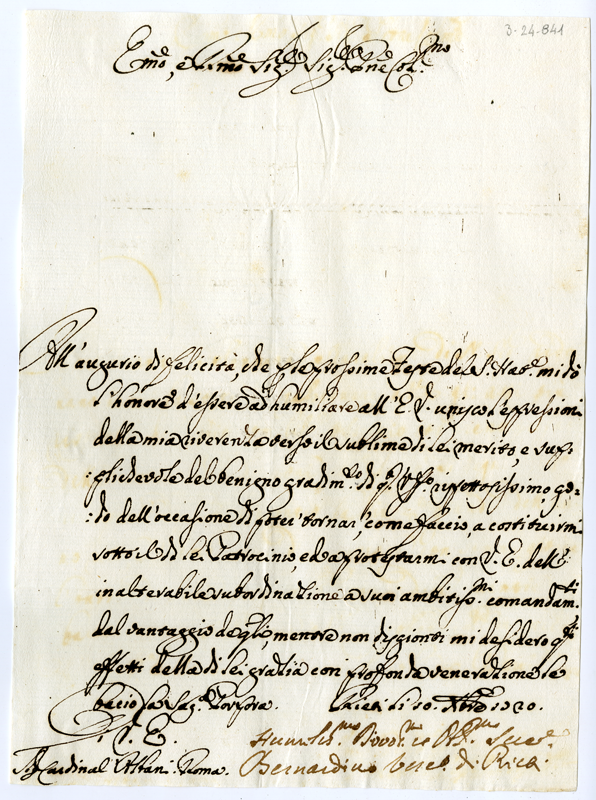 3-24-841
Em̃o, e R.mo Sig.r Sig.r P.ne Col.mo
All'augurio di felicità, che p le prossime Feste del S. Nat.e mi dò
l'honore d'essere ad humiliare all'E. V. unisco l'espressioni
della mia riverenza verso il sublime di lei merito, e sup-
plichevole del benigno gradim.to di q.to
rispettosissimo, go-
do dell'occasione di poter tornar, come faccio, a costituirmi
sotto il di lei Patrocinio, ed a protestarmi con V. E. dell'
inalterabile subordinazione a suoi ambitiss.mi comandam.ti
dal vantaggio de qli, mentre non disgionti mi desidero gli
effetti della di lei gratia con profonda veneratione le
bacio la Sag.a Porpora. li 10. Xbre 1720.
D. V. E.
Humiliss.mo Devot.mo Obl.mo Ser.e
Sig. Cardinal Albani. Roma. Bernardino Vesc. di Rieti